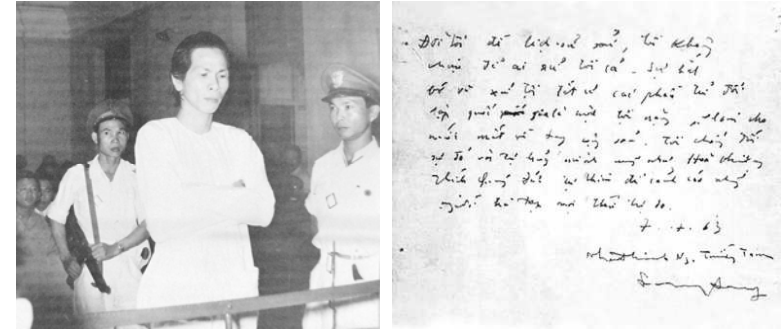 Đời tôi để lịch sử xử, tôi không
chịu để ai xử tôi cả. Sự bắt
bớ và xử tội tất cả các phần tử đối
lập quốc gia là một tội nặng, sẽ làm cho
nước mất về tay cộng sản. Tôi chống đối
sự đó và tự huỷ mình cũng như Hoà thượng
Thích Quảng Đức tự thiêu để cảnh cáo những
người chà đạp mọi thứ tự do.
7.7.63
Nhất Linh Ng. Tường Tam